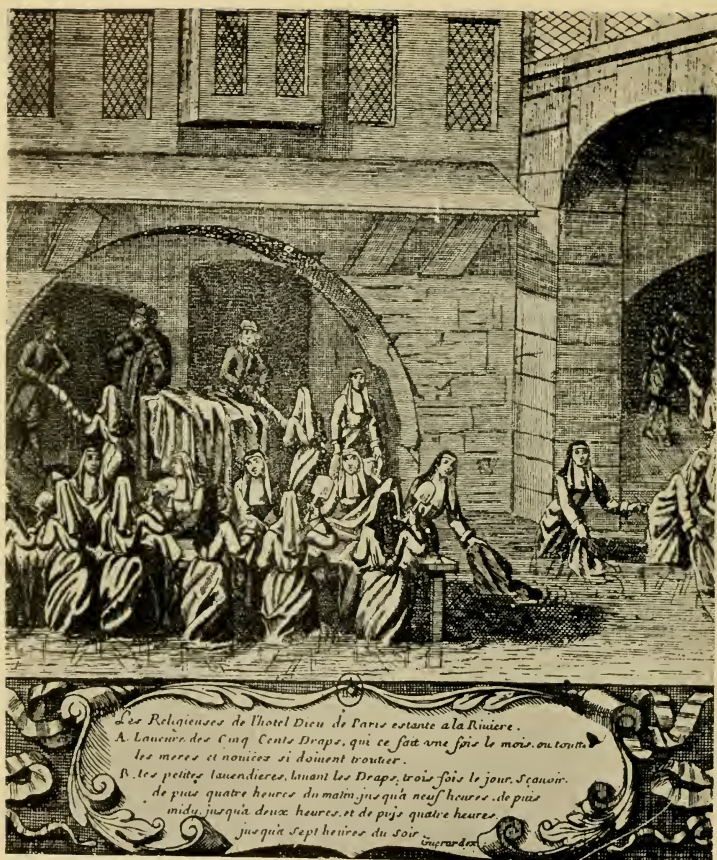 Les Religieuses de l'hotel Dieu de Paris estante a la Riuiere.
A. Laueure des Cinq Cents Draps, qui ce fait vne fois le mois, ou toutte
les meres et nouices si doiuent trouuer.
B. les petites lauendieres, lauant les Draps, trois fois le jour, Scauoir.
de puis quatre heures du matin, jusqu'a neuf heures, de puis
midy, jusqu'a deux heures, et de puis quatre heures,
jusqu'a Sept heures du Soir.